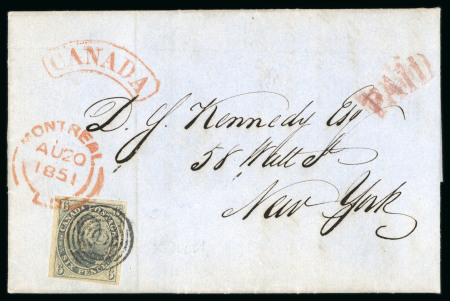 CANADA
PAID
D. S. Kennedy Esq
58 Wall St
New York
MONTREAL
AU 20
1851
L.C.
CANADA POSTAGE
SIX PENCE